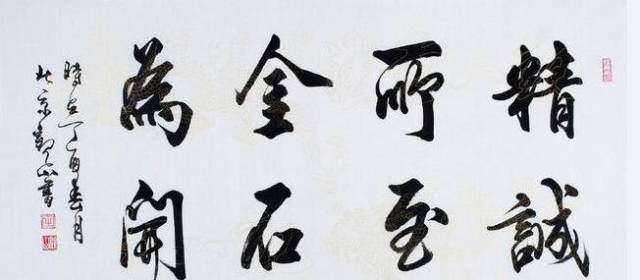 精誠
所至
金石
為開
時在丁酉春月
北京
書